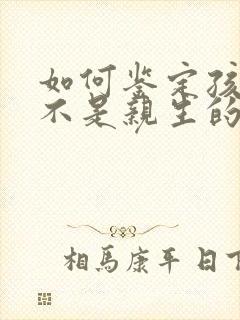 如何鉴定孩
不是親生的
相馬康平 日下